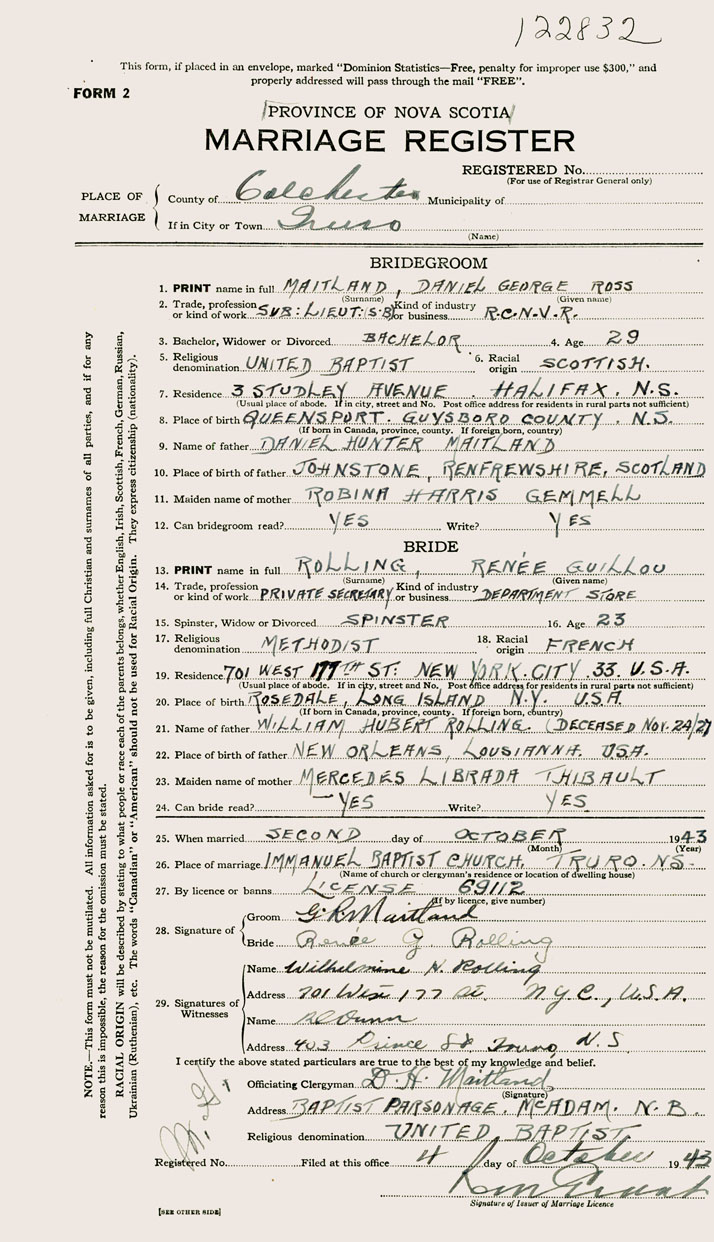 122832
This form, if placed in an envelope, marked “Dominion Statistics—Free, penalty for improper use $300,” and
properly addressed will pass through the mail “FREE”.
FORM 2
PROVINCE OF NOVA SCOTIA
MARRIAGE REGISTER
REGISTERED No.
(For use of Registrar General only)
PLACE OF MARRIAGE
County of Colchester Municipality of
If in City or Town Truro
(Name)
BRIDEGROOM
1. PRINT name in full MAITLAND, DANIEL GEORGE ROSS
(Surname) (Given name)
2. Trade, profession or kind of work SUB: LIEUT: (S.B) Kind of industry or business R.C.N.V.R.
3. Bachelor, Widower or Divorced BACHELOR 4. Age 29
5. Religious denomination UNITED BAPTIST 6. Racial origin SCOTTISH.
7. Residence 3 STUDLEY AVENUE. HALIFAX. N.S.
(Usual place of abode. If in city, street and No. Post office address for residents in rural parts not sufficient)
8. Place of birth QUEENSPORT. GUYSBORO COUNTY. N.S.
(If born in Canada, province, county. If foreign born, country)
9. Name of father DANIEL HUNTER MAITLAND
10. Place of birth of father JOHNSTONE, RENFREWSHIRE, SCOTLAND
11. Maiden name of mother ROBINA HARRIS GEMMELL
12. Can bridegroom read? YES Write? YES
BRIDE
13. PRINT name in full ROLLING, RENÉE GUILLOU
(Surname) (Given name)
14. Trade, profession or kind of work PRIVATE SECRETARY Kind of industry or business DEPARTMENT STORE
15. Spinster, Widow or Divorced SPINSTER 16. Age 23
17. Religious denomination METHODIST 18. Racial origin FRENCH
19. Residence 701 WEST 177TH ST: NEW YORK. CITY. 33. U.S.A.
(Usual place of abode. If in city, street and No. Post office address for residents in rural parts not sufficient)
20. Place of birth ROSEDALE, LONG ISLAND N.Y. U.S.A.
(If born in Canada, province, county. If foreign born, country)
21. Name of father WILLIAM HUBERT ROLLING. (DECEASED NOV. 24/27
22. Place of birth of father NEW ORLEANS, LOUSIANNA. USA.
23. Maiden name of mother MERCEDES LIBRADA THIBAULT
24. Can bride read? YES Write? YES
25. When married SECOND day of OCTOBER 1943
(Month) (Year)
26. Place of marriage IMMANUEL BAPTIST CHURCH. TRURO. NS.
(Name of church or clergyman's residence or location of dwelling house)
27. By licence or banns LICENSE 69112
(If by licence, give number)
28. Signature of
Groom G R Maitland
Bride Renée G. Rolling
29. Signatures of Witnesses
Name Wilhelmine H. Rolling
Address 701 West 177 St. N.Y.C., U.S.A.
Name
Address 403 Prince St Truro, N.S.
I certify the above stated particulars are true to the best of my knowledge and belief.
Officiating Clergyman D. H. Maitland
(Signature)
Address BAPTIST PARSONAGE. McADAM. N.B.
Religious denomination UNITED BAPTIST
Registered No. Filed at this office 4 day of October 1943
Signature of Issuer of Marriage Licence
[SEE OTHER SIDE]
NOTE.—This form must not be mutilated. All information asked for is to be given, including full Christian and surnames of all parties, and if for any
reason this is impossible, the reason for the omission must be stated.
RACIAL ORIGIN will be described by stating to what people or race each of the parents belongs, whether English, Irish, Scottish, French, German, Russian,
Ukrainian (Ruthenian), etc. The words “Canadian” or “American” should not be used for Racial Origin. They express citizenship (nationality).